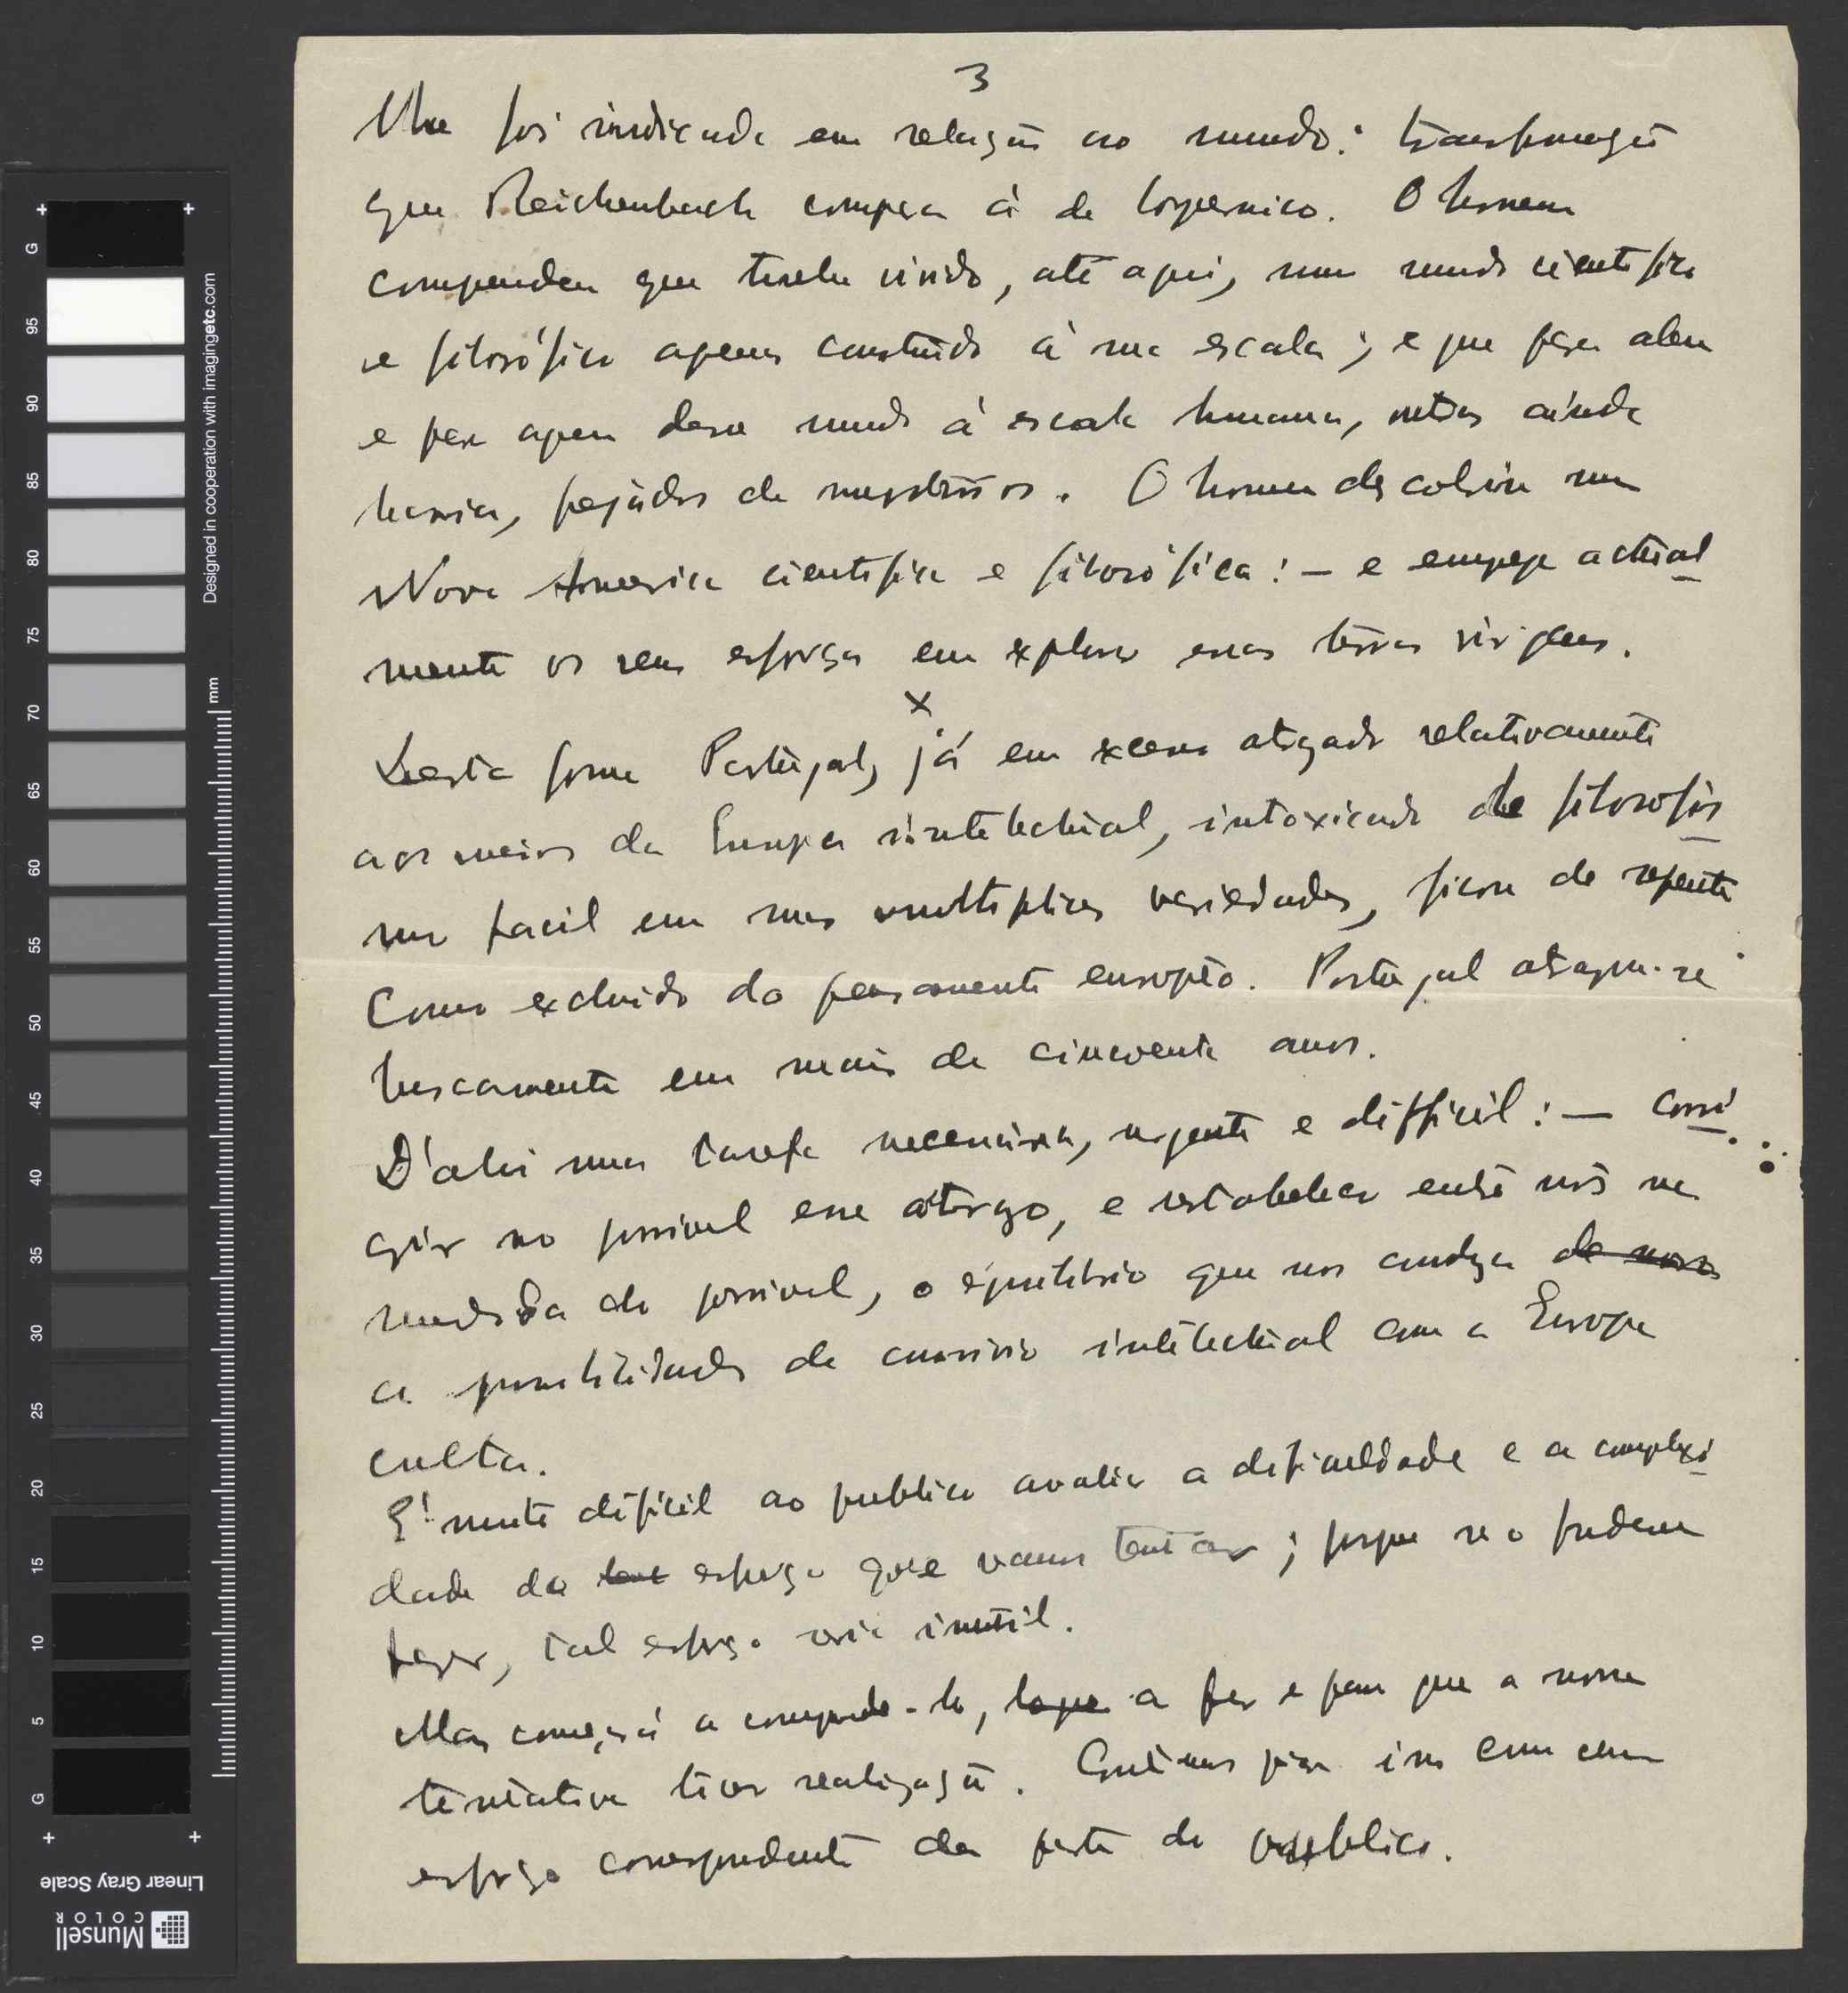 3
lhe foi indicada em relação ao mundo: transformação
que Reichenbach compara à de Copernico. O homem
compreendeu que tinha vivido, até aqui, num mundo cientifico
e filosófico apenas construido à sua escala; e que para alem
e para aquem desse mundo à escala humana, outros ainda
havia, pejados de misterios. O homem descobriu uma
Nova America cientifica e filosófica: — e emprega actual
mente os seus esforços em explorar essas terras virgens.
x
Desta forma Portugal, já em excesso atrazado relativamente
aos meios da Europa intelectual, intoxicado de filosofis
mo facil em suas multiplices variedades, ficou de repente
como excluido do pensamento europeo. Portugal atrazou-se
buscamente em mais de cincoenta anos.
D'ahi uma tarefa necessaria, urgente e difficil: — corri
gir no possivel esse atrazo, e restabelecer entre nós na
medida do possivel, o equilibrio que nos conduza de novo
a possibilidade de convivio intelectual com a Europa
culta.
É muito dificil ao publico avaliar a dificuldade e a complexi
dade do esforço que vamos tentar; porque se o pudesse
fazer, tal esforço seria inutil.
Mas começará a compreende-lo, logo a par e passo que a nossa
tentativa tiver realização. Contamos para isso com um
esforço correspondente da parte do publico.
Designed in cooperation with imagingetc.com
mm
G
95
90
85
80
75
70
65
60
55
50
45
40
35
30
25
20
15
10
5
G
Linear Gray Scale
Munsell
COLOR